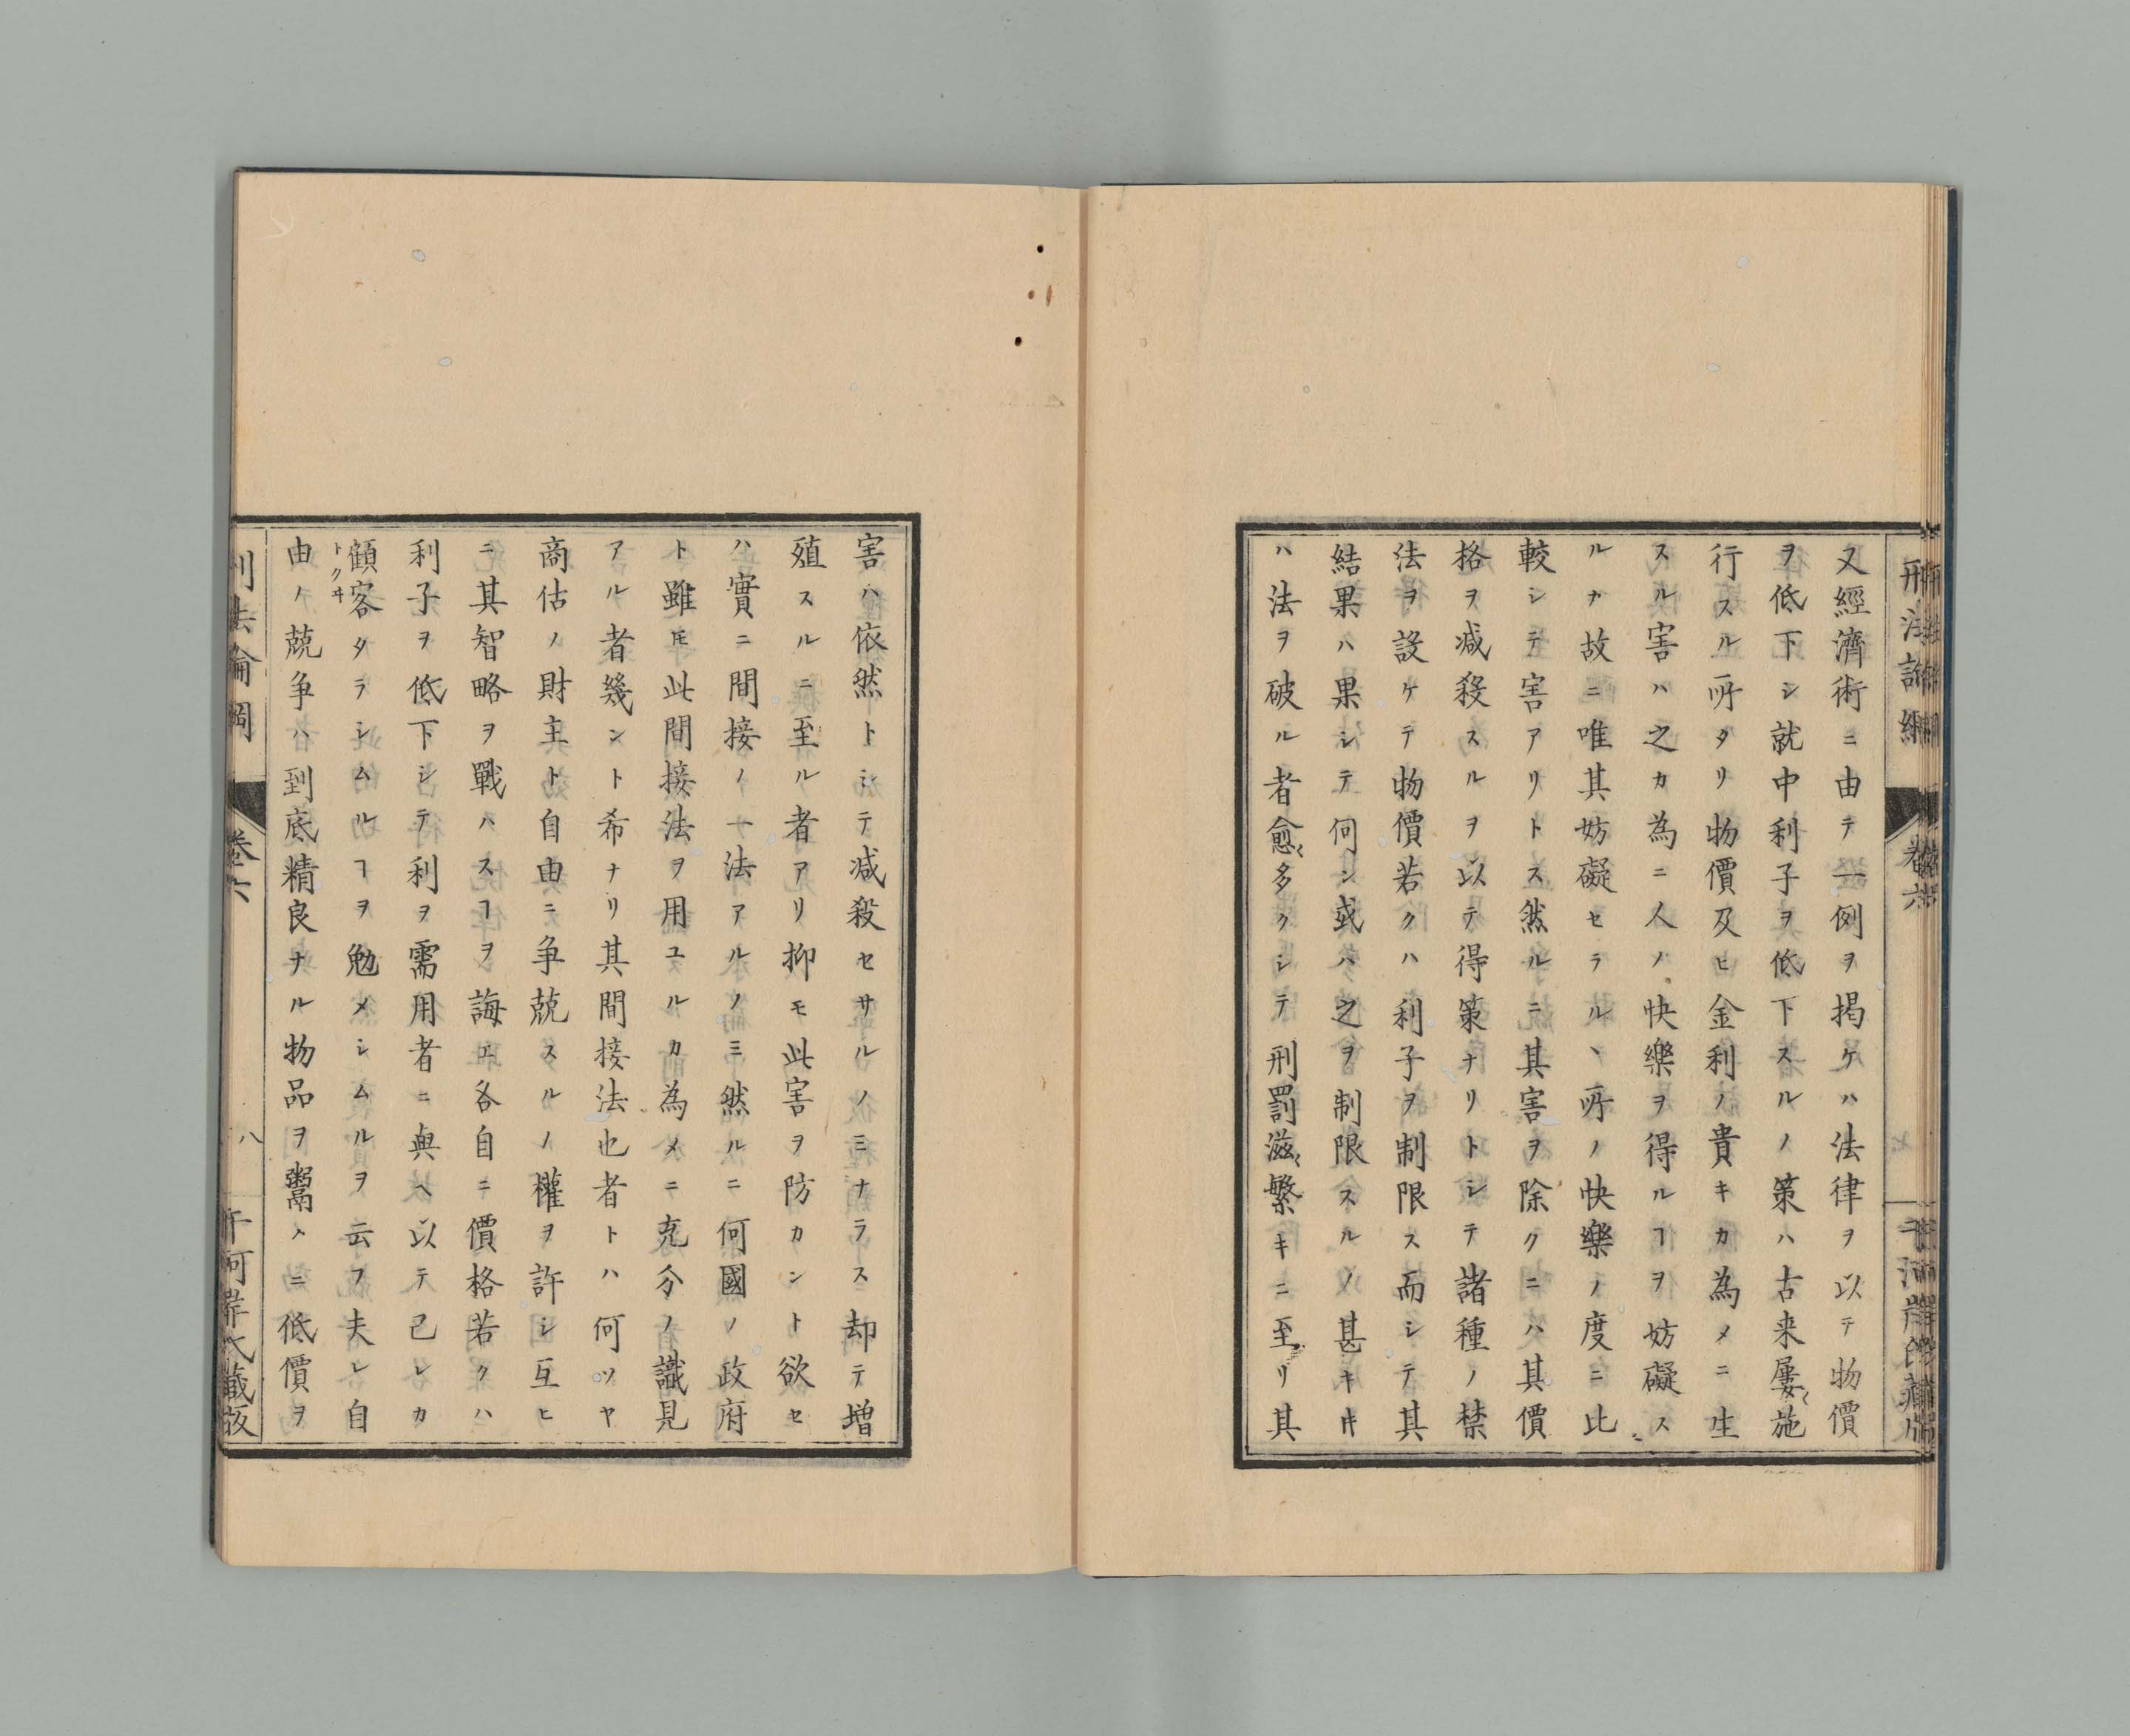 又經濟術ニ由テ一例ヲ掲ケハ法律ヲ以テ物價
ヲ低下シ就中利子ヲ低下スルノ策ハ古来屢〻施
行スル所タリ物價及ヒ金利ノ貴キカ為メニ生
スル害ハ之カ為ニ人ノ快樂ヲ得ルヿヲ妨礙ス
ルカ故ニ唯其妨礙セラルヽ所ノ快樂ノ度ニ比
較シテ害アリトス然ルニ其害ヲ除クニハ其價
格ヲ减殺スルヲ以テ得策ナリトシテ諸種ノ禁
法ヲ設ケテ物價若クハ利子ヲ制限ス而シテ其
結果ハ果シテ何ン或ハ之ヲ制限スルノ甚キ𪜈
ハ法ヲ破ル者愈〻多クシテ刑罰滋〻繁キニ至リ其
害ハ依然トシテ减殺セサルノミナラス却テ增
殖スルニ至ル者アリ抑モ此害ヲ防カント欲セ
ハ實ニ間接ノ一法アルノミ然ルニ何國ノ政府
ト雖𪜈此間接法ヲ用ユルカ為メニ充分ノ識見
アル者幾ント希ナリ其間接法也者トハ何ツヤ
商估ノ財主ト自由ニ争競スルノ權ヲ許シ互ヒ
ニ其智略ヲ戰ハスヿヲ誨エ各自ニ價格若クハ
利子ヲ低下シテ利ヲ需用者ニ與ヘ以テ己レカ
顧客タラシムルヿヲ勉メシムルヲ云フ夫レ自
トクヰ
由ノ競争ハ到底精良ナル物品ヲ鬻クニ低價ヲ
刑法論綱
卷六
八
千河岸氏藏版